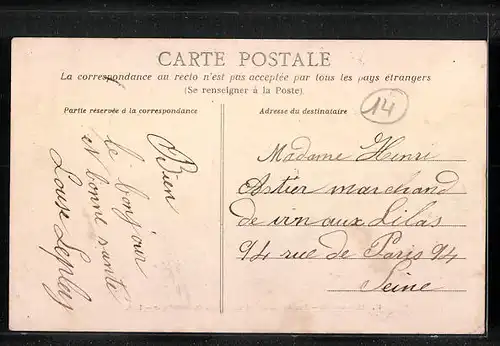 CARTE POSTALE
La correspondance au recto n'est pas acceptée par tous les pays étrangers
(Se renseigner à la Poste).
Partie réservée à la correspondance
Bien
le bonjour
et bonne santé
Louise Leplay
Adresse du destinataire
14
Madame Henri
Astier marchand
de vin aux Lilas
94 rue de Paris 94
Seine